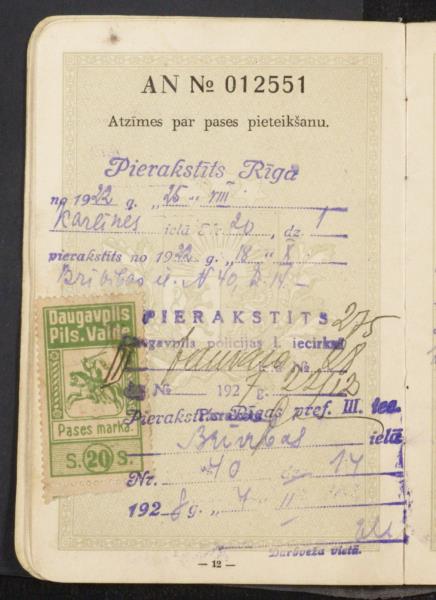 AN № 012551
Atzīmes par pases pieteikšanu.
Pierakstīts Rīgā
no 1922 g. „25„ VIII
Karlīnes ielā № 20, dz. 1
pierakstīts no 1922 g. „18„ X
Brīvības ielā N 40, dz. 14
PIERAKSTĪTS 275
Daugavpils policijas I. iecirknī
Daugavpils
Pils. Valde
№
dz № 1927
Pierakstīts Rīgas pref. III. iec.
Pases marka.
Brīvības ielā
S. 20 S.
Nr. 40 dz 14
1928 g. „7„ II
Darbveža vietā.
— 12 —